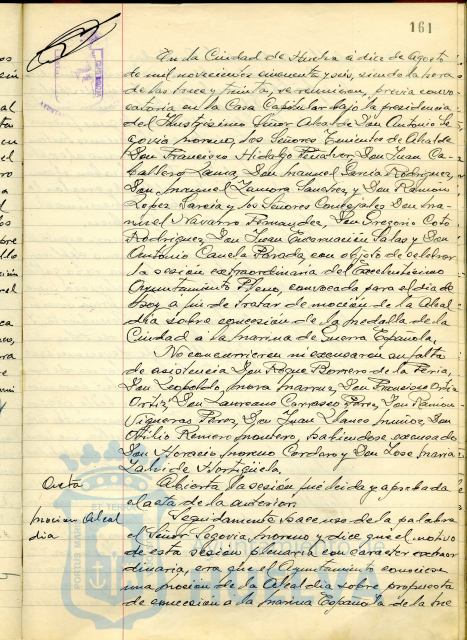 161
En la Ciudad de Huelva a diez de Agosto
de mil novecientos cincuenta y seis, siendo la hora
de las trece y treinta, se reunieron, previa convo-
catoria en la Casa Capitular bajo la presidencia
del Ilustrisimo Señor Alcalde Don Antonio Se
govia Moreno, los Señores Tenientes de Alcalde
Don Francisco Hidalgo Don Juan Ca
ballero Don Manuel Garcia Rodriguez,
Don Manuel Zamora Sanchez, y Don Ramon
Lopez Garcia y los Señores Concejales Don Ma-
nuel Navarro Fernandez, Don Gregorio Coto
Rodriguez, Don Juan Encarnación Salas y Don
Antonio Canela Parada, con objeto de celebrar
la sesión extraordinaria del Excelentisimo
Ayuntamiento Pleno, convocada para el dia de
hoy a fin de tratar de moción de la Alcal
dia sobre concesión de la medalla de la
Ciudad a la Marina de Guerra Española.
No concurrieron ni excusaron su falta
de asistencia Don Roque Borrero de la Feria,
Don Leopoldo Mora Don Francisco Ortiz
Ortiz, Don Laureano Carrasco Perez, Don Ramon
Vigueras Perez, Don Juan Llanes Muñoz, Don
Otilio Romero Montero, habiendose excusado
Don Horacio Moreno Cordero y Don Jose Maria
de Hortigüela.
Acta
Abierta la sesión fué leida y aprobada
el acta de la anterior.
Mocion Alcal
dia
Seguidamente hace uso de la palabra
el Señor Segovia Moreno y dice que el motivo
de esta sesión plenaria con caracter extraor
dinaria, era que el Ayuntamiento conociese
una moción de la Alcaldia sobre propuesta
de concesión a la Marina Española de la me